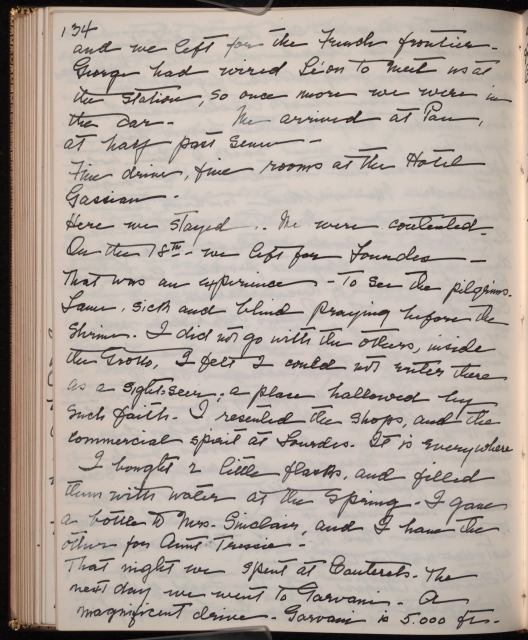 134
and we left for the French frontier -
George had wired Léon to meet us at
the station, so once more we were in
the car - We arrived at Pau,
at half past seven -
Fine drive, fine rooms at the Hotel
Gassion -
Here we stayed .. We were contented -
On the 18th - we left for Lourdes -
That was an experience - To see the pilgrims -
Lame, sick and blind praying before the
Shrine. I did not go with the others, inside
the Grotto, I felt I could not enter there
as a sight-seer; a place hallowed by
such faith - I resented the shops, and the
commercial spirit at Lourdes. It is everywhere
I bought 2 little flasks, and filled
them with water at the Spring - I gave
a bottle to Mrs. Sinclair, and I have the
other for Aunt Tressie -
That night we spent at Cauterets - The
next day we went to Garvani - A
magnificent drive - Garvani is 5.000 ft -